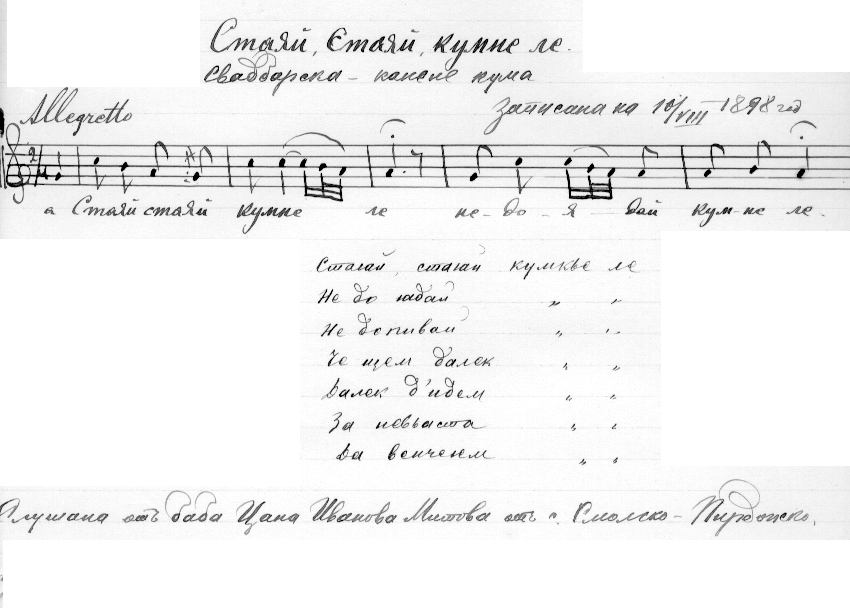 Стаяй, Стаяй, кумне ле.
Сватбарска – канене кума
Allegretto
Записана на 10/VIII 1898 год
а Стаяй стаяй кумне ле не-до-я-дай кум-не ле.
Стаяй, стаяй кумнье ле
Не до ядай " "
Не допивай " "
Че щем далек " "
Далек д'идем " "
За невяста " "
Да венчеем " "
Слушана отъ баба Цана Иванова Митова отъ с. Смолско – Пирдопско.